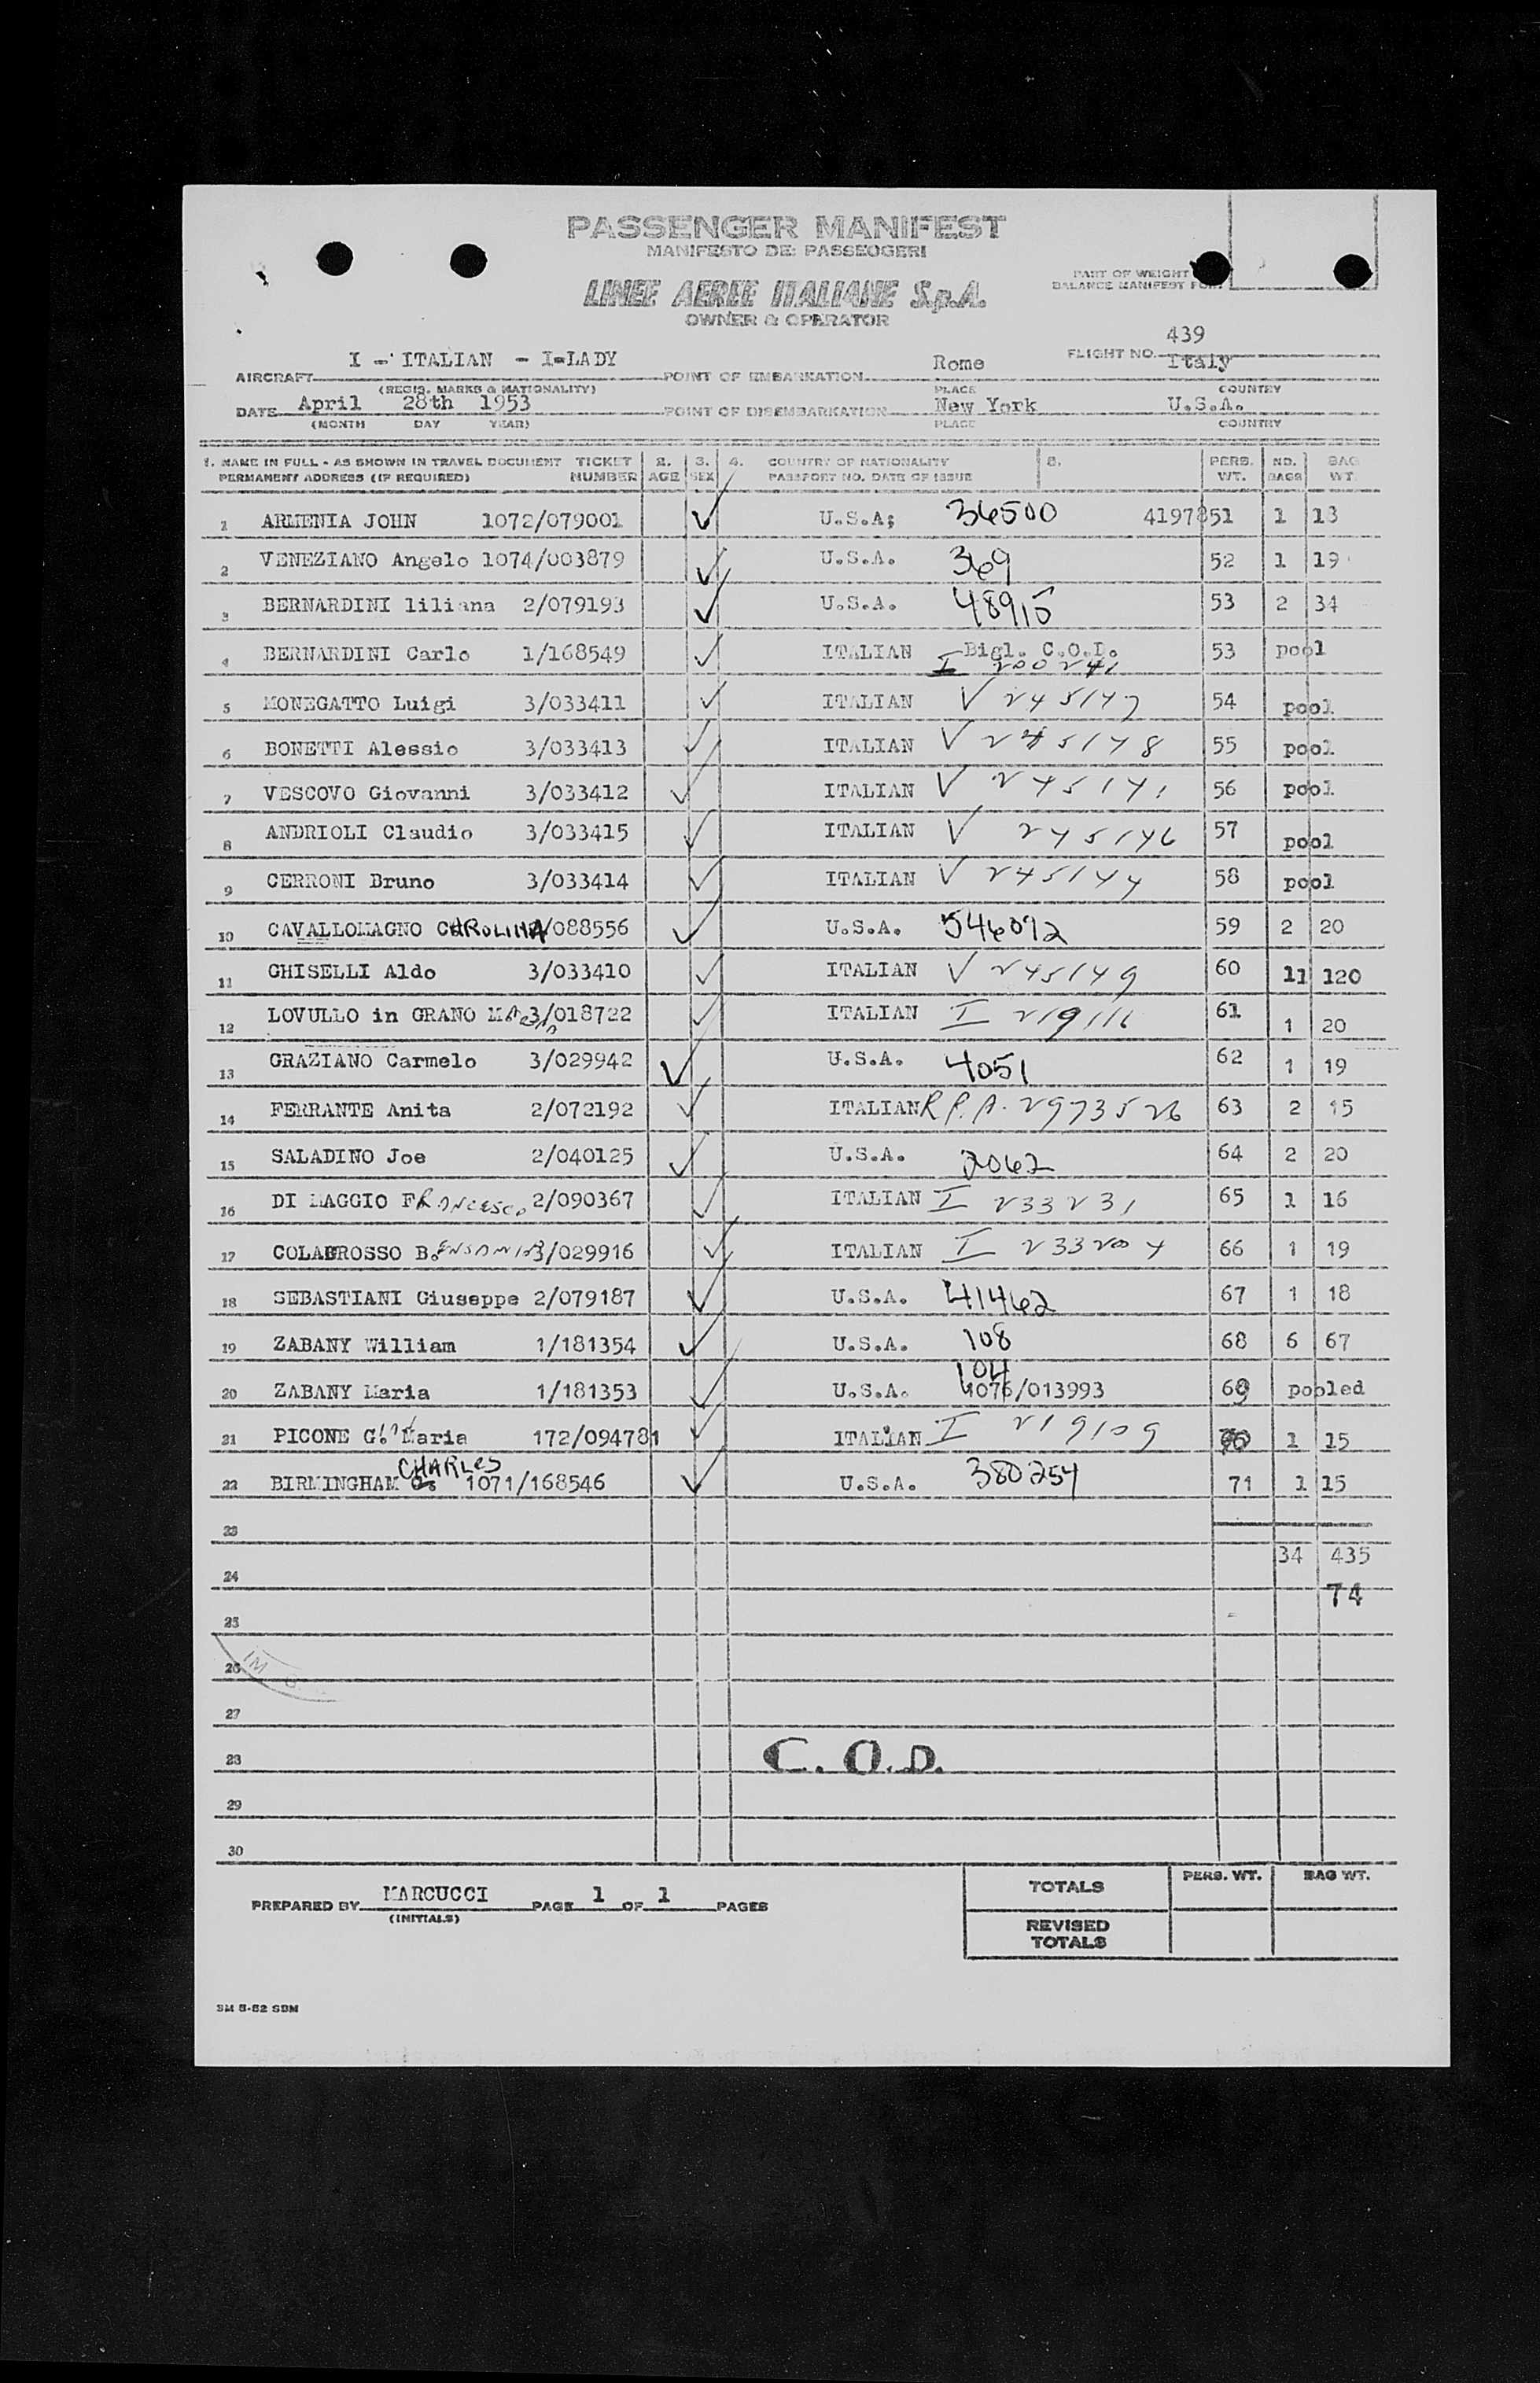 PASSENGER MANIFEST
MANIFESTO DEI PASSEGGERI
LINEE AEREE ITALIANE S.p.A.
OWNER & OPERATOR
PART OF WEIGHT
BALANCE MANIFEST FOR
439
AIRCRAFT I - ITALIAN - I-LADY POINT OF EMBARKATION Rome FLIGHT NO. Italy
(REGIS. MARKS & NATIONALITY) PLACE COUNTRY
DATE April 28th 1953 POINT OF DISEMBARKATION New York U.S.A.
(MONTH DAY YEAR) PLACE COUNTRY
1. NAME IN FULL - AS SHOWN IN TRAVEL DOCUMENT TICKET 2. 3. 4. COUNTRY OF NATIONALITY PERS. NO. BAG
PERMANENT ADDRESS (IF REQUIRED) NUMBER AGE SEX PASSPORT NO. DATE OF ISSUE WT. BAGS WT.
1 ARMENIA JOHN 1072/079001 U.S.A; 36500 4197851 1 13
2 VENEZIANO Angelo 1074/003879 U.S.A. 369 52 1 19
3 BERNARDINI liliana 2/079193 U.S.A. 48915 53 2 34
4 BERNARDINI Carlo 1/168549 ITALIAN Bigl. C.O.I. 53 pool
I 200241
5 MONEGATTO Luigi 3/033411 ITALIAN V 245147 54 pool
6 BONETTI Alessio 3/033413 ITALIAN V 245148 55 pool
7 VESCOVO Giovanni 3/033412 ITALIAN V 245141 56 pool
8 ANDRIOLI Claudio 3/033415 ITALIAN V 245146 57 pool
9 CERRONI Bruno 3/033414 ITALIAN V 245144 58 pool
10 CAVALLOMAGNO CAROLINA/088556 U.S.A. 546092 59 2 20
11 GHISELLI Aldo 3/033410 ITALIAN V 245149 60 11 120
12 LOVULLO in GRANO MARIA 3/018722 ITALIAN I 219116 61 1 20
13 GRAZIANO Carmelo 3/029942 U.S.A. 4051 62 1 19
14 FERRANTE Anita 2/072192 ITALIAN R.P.A. 2973526 63 2 15
15 SALADINO Joe 2/040125 U.S.A. 2062 64 2 20
16 DI MAGGIO FRANCESCO 2/090367 ITALIAN I 233231 65 1 16
17 COLAGROSSO 3/029916 ITALIAN I 233204 66 1 19
18 SEBASTIANI Giuseppe 2/079187 U.S.A. 41462 67 1 18
19 ZABANY William 1/181354 U.S.A. 108 68 6 67
104
20 ZABANY Maria 1/181353 U.S.A. 1076/013993 69 pooled
21 PICONE Maria 172/094781 ITALIAN I 219109 70 1 15
CHARLES
22 BIRMINGHAM 1071/168546 U.S.A. 380254 71 1 15
23
34 435
24
74
25
26
27
28 C.O.D.
29
30
PREPARED BY MARCUCCI PAGE 1 OF 1 PAGES
(INITIALS)
TOTALS PERS. WT. BAG WT.
REVISED
TOTALS
5M 5-52 SBM